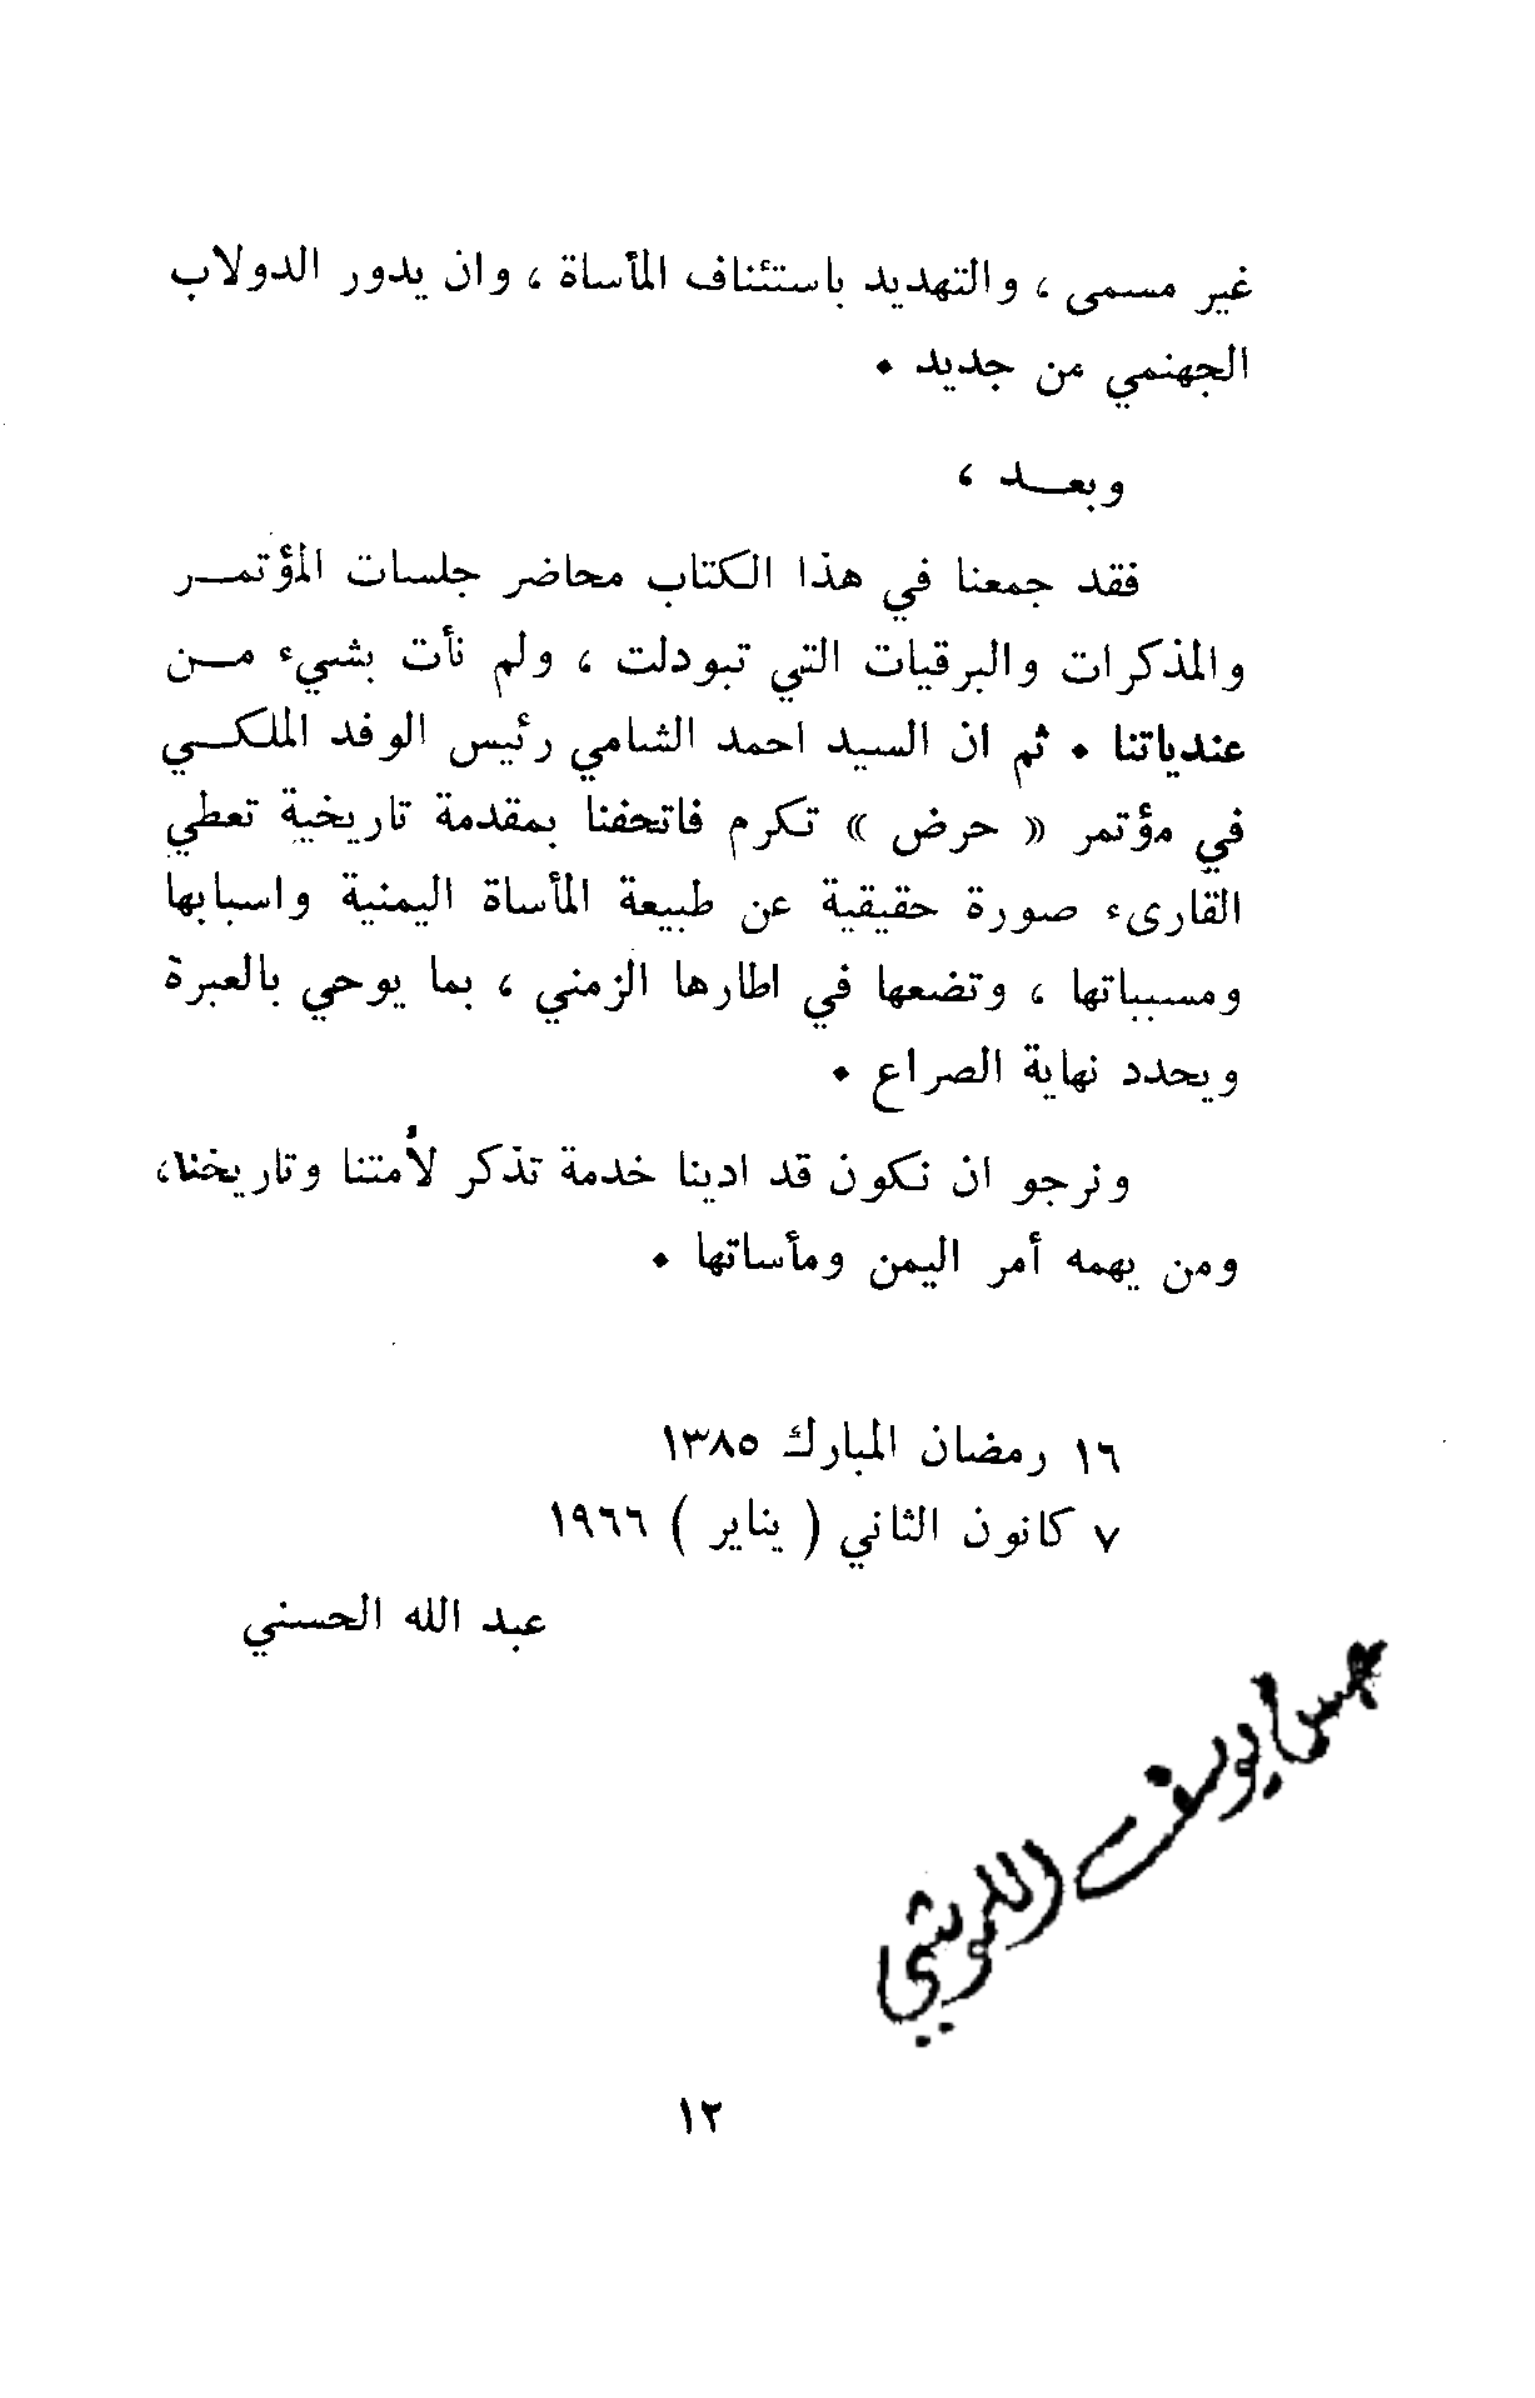 غير مسمى ، والتهديد باستئناف المأساة ، وان يدور الدولاب
الجهنمي من جديد ٠
وبعـــد ،
فقد جمعنا في هذا الكتاب محاضر جلسات المؤتمـــر
والمذكرات والبرقيات التي تبودلت ، ولم نأت بشيء مـــن
عندياتنا ٠ ثم ان السيد احمد الشامي رئيس الوفد الملكـــي
في مؤتمر « حرض » تكرم فاتحفنا بمقدمة تاريخية تعطي
القارىء صورة حقيقية عن طبيعة المأساة اليمنية واسبابها
ومسبباتها ، وتضعها في اطارها الزمني ، بما يوحي بالعبرة
ويحدد نهاية الصراع ٠
ونرجو ان نكون قد ادينا خدمة تذكر لأمتنا وتاريخنا،
ومن يهمه أمر اليمن ومأساتها ٠
١٦ رمضان المبارك ١٣٨٥
٧ كانون الثاني ( يناير ) ١٩٦٦
عبد الله الحسني
يوسف
١٢